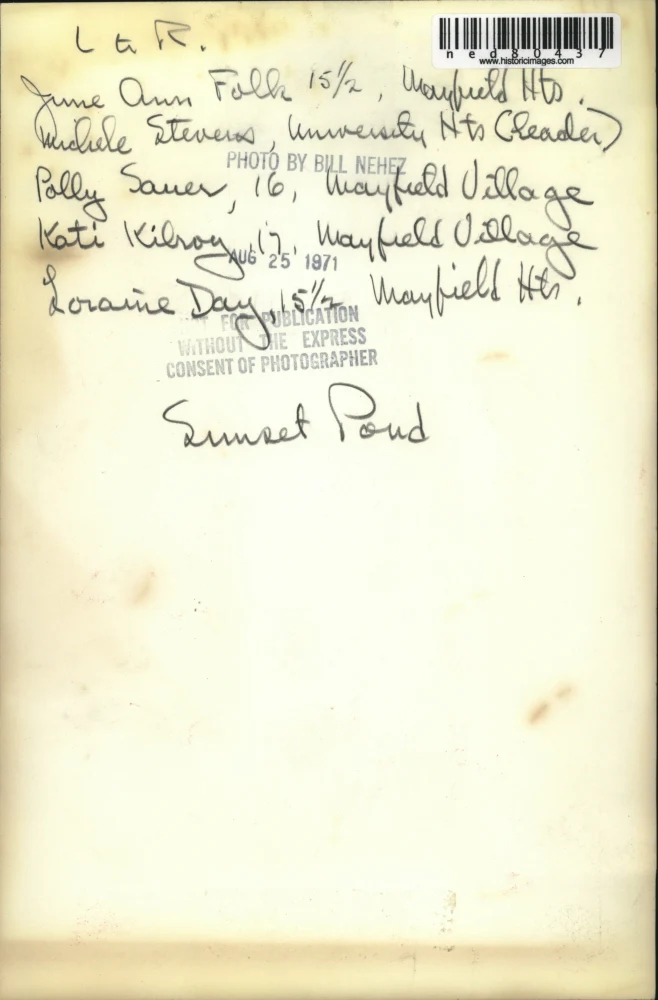 L to R.
ned80437
www.historicimages.com
June Ann Folk 15 1/2, Mayfield Hts.
Michele Stevens, University Hts (Leader)
PHOTO BY BILL NEHEZ
Polly Sauer, 16, Mayfield Village
Kati Kilroy, 17, Mayfield Village
AUG 25 1971
Loraine Day, 15 1/2 Mayfield Hts.
NOT FOR PUBLICATION
WITHOUT THE EXPRESS
CONSENT OF PHOTOGRAPHER
Sunset Pond